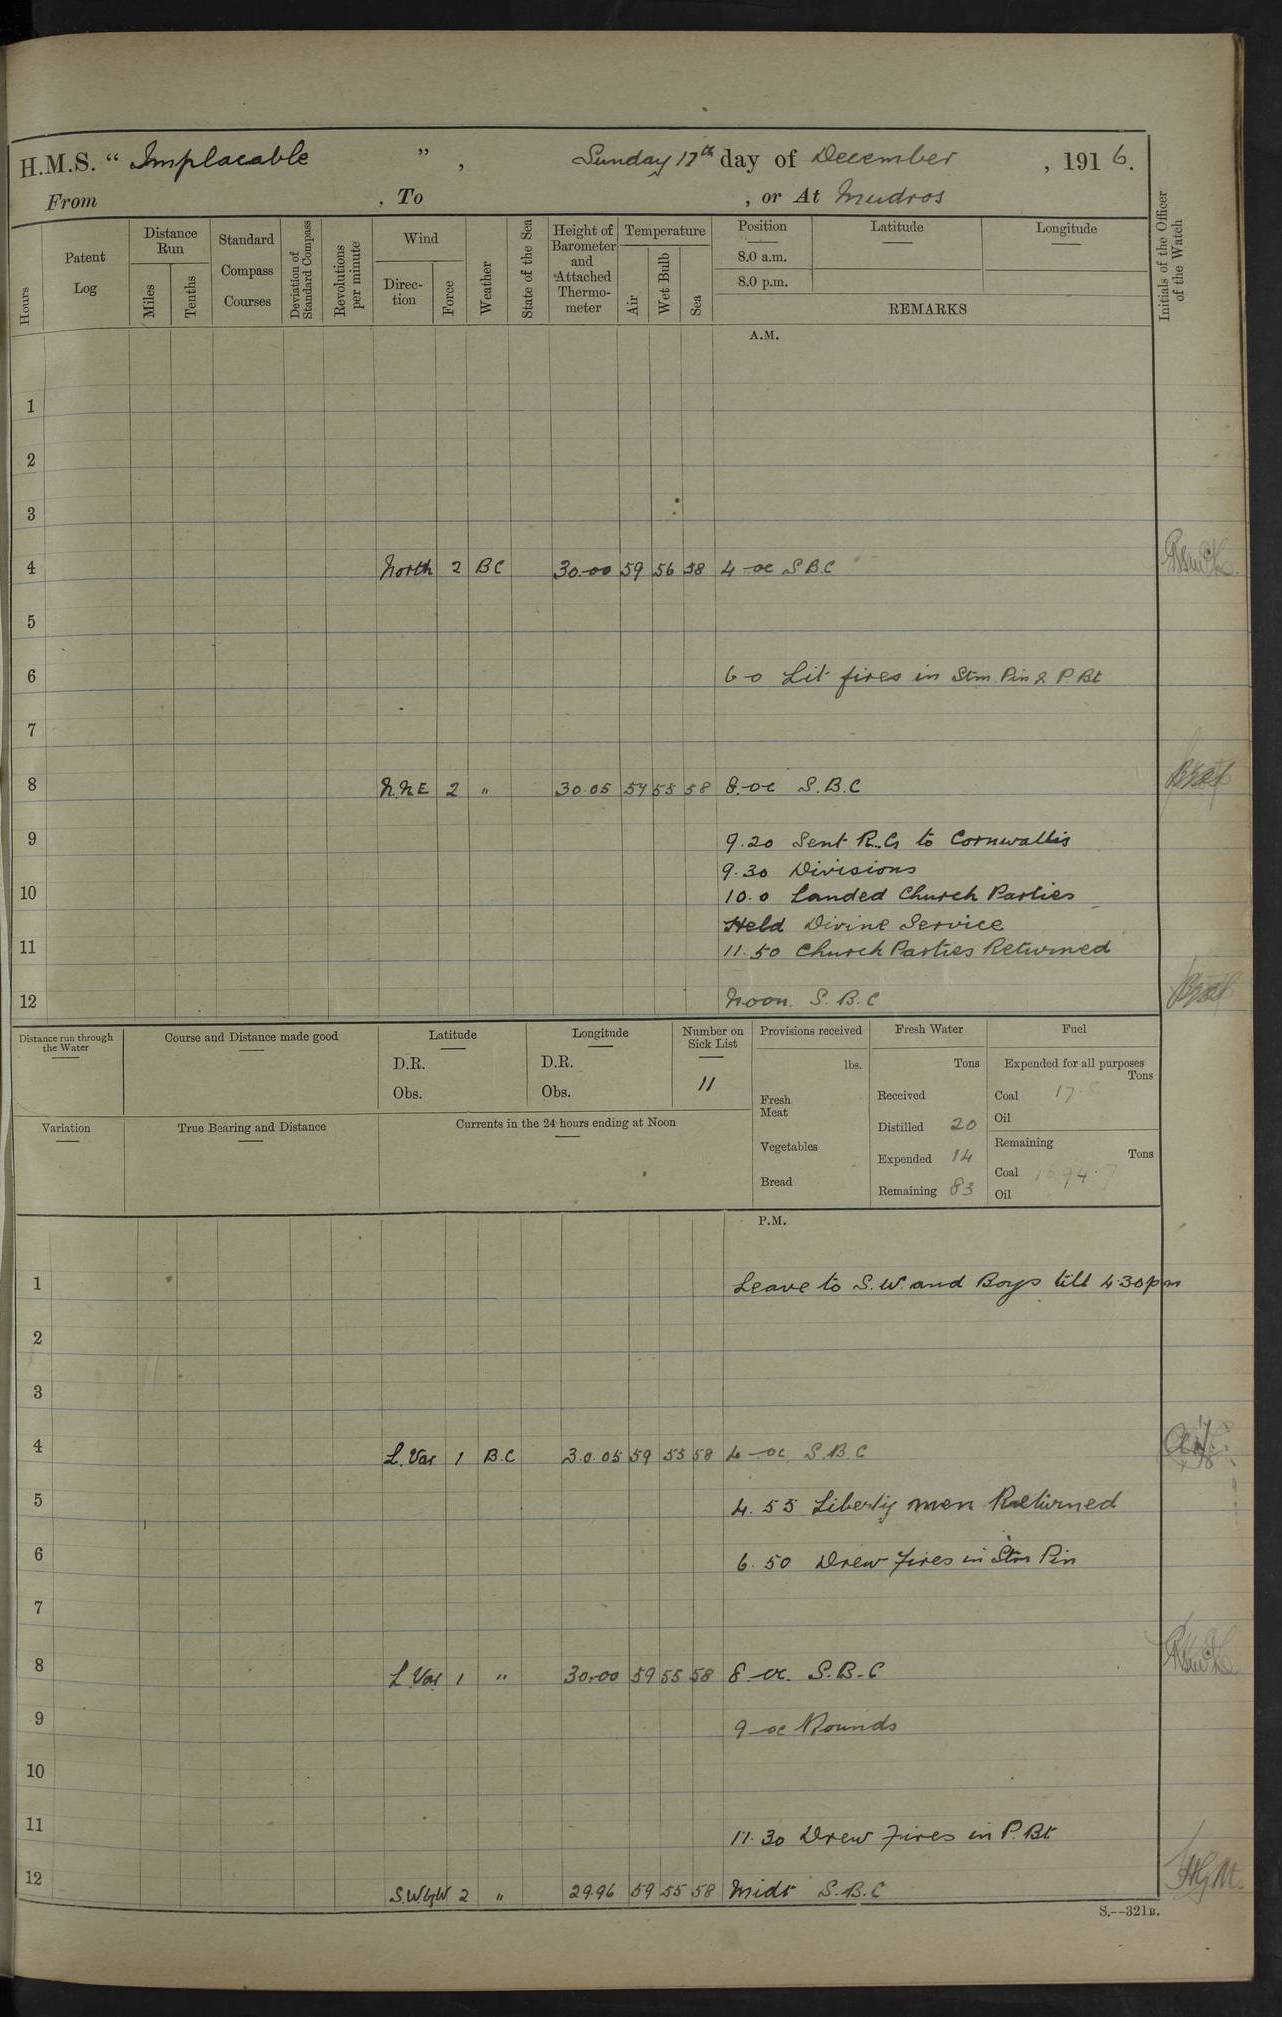 H.M.S. “ Implacable ” , Sunday 17th day of December , 1916.
From , To , or At Mudros
Hours
Patent Log
Distance Run
Miles
Tenths
Standard Compass Courses
Deviation of Standard Compass
Revolutions per minute
Wind
Direction
Force
Weather
State of the Sea
Height of Barometer and Attached Thermometer
Temperature
Air
Wet Bulb
Sea
Position
8.0 a.m.
8.0 p.m.
Latitude
Longitude
REMARKS
Initials of the Officer of the Watch
A.M.
1
2
3
4 North 2 BC 30.00 59 56 58 4-oc S B C
5
6 6-0 Lit fires in Stm. Pin & P. Bt
7
8 N.N.E 2 " 30.05 54 55 58 8-oc S.B.C
9 9.20 Sent R.Cs to Cornwallis
9.30 Divisions
10 10.0 Landed Church Parties
Held Divine Service
11 11.50 Church Parties Returned
12 Noon. S.B.C
Distance run through the Water
Course and Distance made good
Latitude
D.R.
Obs.
Longitude
D.R.
Obs.
Number on Sick List
11
Provisions received
lbs.
Fresh Meat
Vegetables
Bread
Fresh Water
Tons
Received
Distilled 20
Expended 14
Remaining 83
Fuel
Expended for all purposes
Tons
Coal 17.
Oil
Remaining
Tons
Coal
Oil
Variation
True Bearing and Distance
Currents in the 24 hours ending at Noon
P.M.
1 Leave to S.W. and Boys till 4.30 pm
2
3
4 L.Var 1 B.C 30.05 59 55 58 4-oc. S.B.C
5 4.55 Liberty men Returned
6 6.50 Drew Fires in Stm Pin
7
8 L.Var 1 " 30.00 59 55 58 8-oc. S.B.C
9 9-oc Rounds
10
11 11.30 Drew Fires in P. Bt
12 S.WbyW 2 " 29.96 59 55 58 Midt S.B.C
S.--321B.